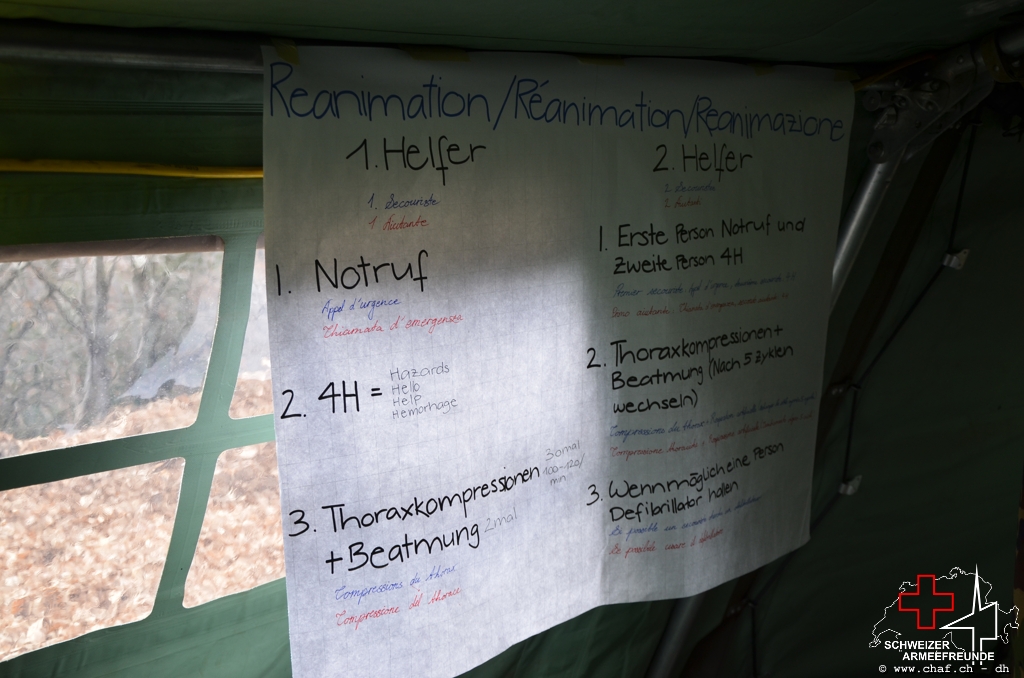 Reanimation/Réanimation/Reanimazione
1. Helfer
1. Secouriste
1 Aiutante
1. Notruf
Appel d'urgence
Chiamata d'emergensza
2. 4H =
Hazards
Hello
Help
Hemorhage
3. Thoraxkompressionen
30mal
100-120/
min
+Beatmung 2mal
Compressions du thorax
Compressione del thorace
2. Helfer
2. Secouriste
2. Aiutanti
1. Erste Person Notruf und
Zweite Person 4H
2. Thoraxkompressionen+
Beatmung (Nach 5 Zyklen
wechseln)
3. Wennmöglich eine Person
Defibrillator holen
SCHWEIZER
ARMEEFREUNDE
© www.chaf.ch - dh